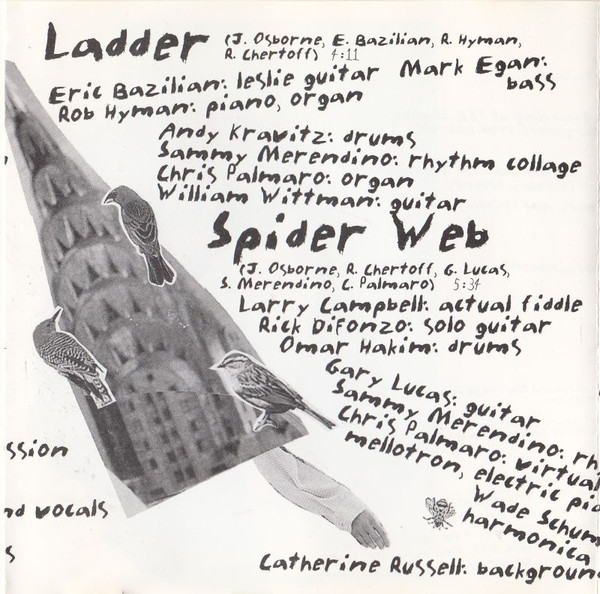 Ladder (J. Osborne, E. Bazilian, R. Hyman,
R. Chertoff) 4:11
Eric Bazilian: leslie guitar Mark Egan:
bass
Rob Hyman: piano, organ
Andy Kravitz: drums
Sammy Merendino: rhythm collage
Chris Palmaro: organ
William Wittman: guitar
Spider Web
(J. Osborne, R. Chertoff, G. Lucas,
S. Merendino, C. Palmaro) 5:34
Larry Campbell: actual fiddle
Rick DiFonzo: solo guitar
Omar Hakim: drums
Gary Lucas: guitar
Sammy Merendino: rh
Chris Palmaro: virtual
mellotron, electric pia
Wade Schum
harmonica
ssion
nd vocals
s
Catherine Russell: backgroun